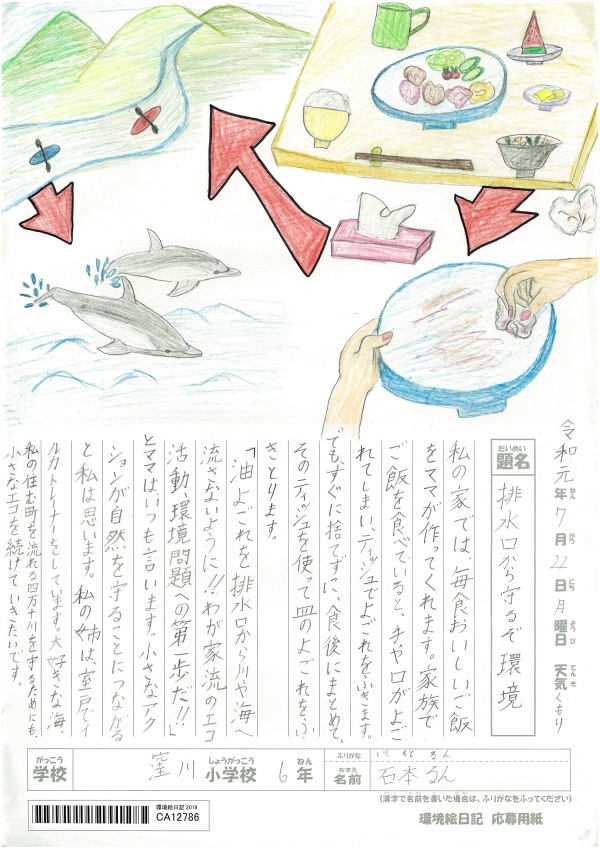 令和元年7月22日月曜日 天気くもり
ねん がつ にち ようび てんき
だいめい
題名 排水口から守るぞ環境
私の家では、毎食おいしいご飯
をママが作ってくれます。家族で
ご飯を食べていると、手や口がよご
れてしまい、ティッシュでよごれをふきます。
でも、すぐに捨てずに、食後にまとめて、
そのティッシュを使って皿のよごれをふ
きとります。
「油よごれを排水口から川や海へ
流さないように!!わが家流のエコ
活動、環境問題への第一歩だ!!」
とママは、いつも言います。小さなアク
ションが自然を守ることにつながる
と私は思います。私の姉は、室戸でイ
ルカトレーナーをしています。大好きな海、
私の住む町を流れる四万十川を守るためにも、
小さなエコを続けていきたいです。
がっこう しょうがっこう ねん
学校 窪川小学校 6年
ふりがな いしもと るん
なまえ
名前 石本るん
(漢字で名前を書いた場合は、ふりがなをふってください)
環境絵日記2019
CA12786
環境絵日記 応募用紙